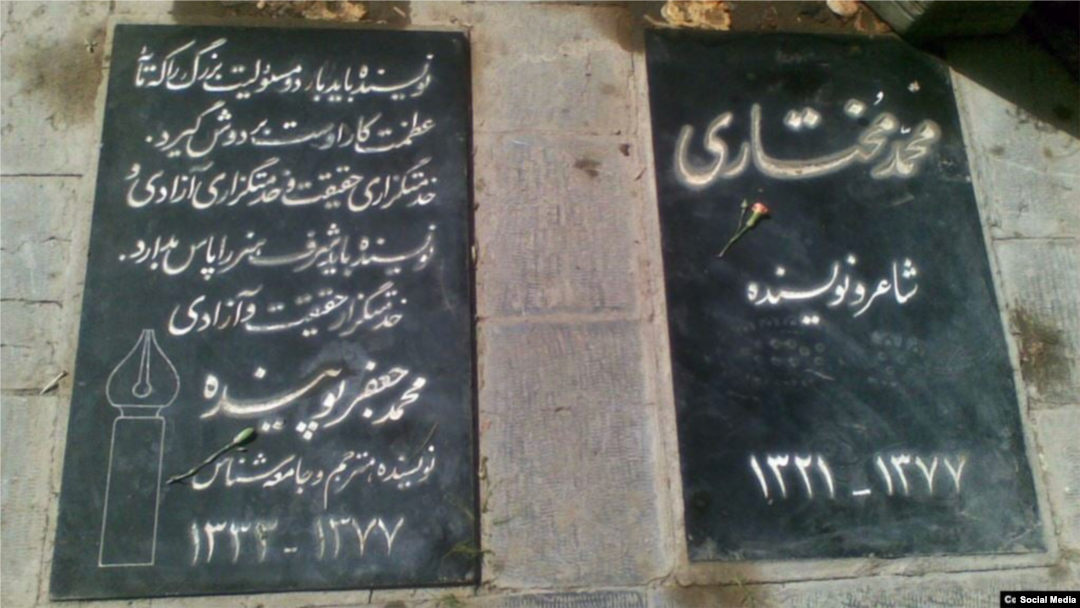 محمّد مُختاری
شاعر و نویسنده
۱۳۲۱ - ۱۳۷۷
نویسنده باید بار دو مسئولیت بزرگ را که
عظمت کار اوست بر دوش گیرد.
خدمتگزاری حقیقت و خدمتگزاری آزادی و
نویسنده باید شرف هنر را پاس بدارد.
خدمتگزار حقیقت و آزادی
محمد جعفر پوینده
نویسنده، مترجم و جامعه شناس
۱۳۳۳ - ۱۳۷۷
Social Media